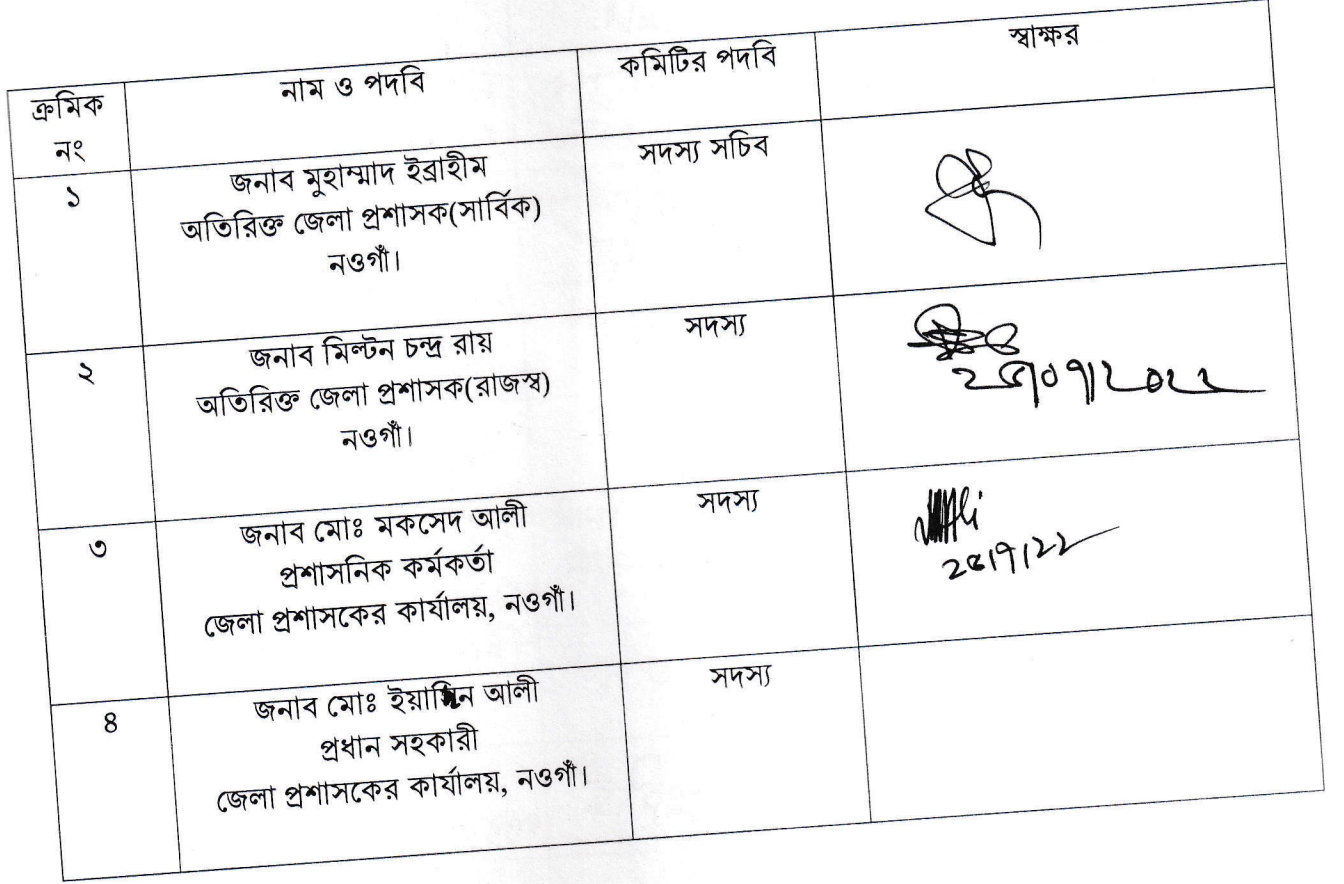 ক্রমিক
নং
নাম ও পদবি
কমিটির পদবি
স্বাক্ষর
১
জনাব মুহাম্মাদ ইব্রাহীম
অতিরিক্ত জেলা প্রশাসক(সার্বিক)
নওগাঁ।
সদস্য সচিব
২
জনাব মিল্টন চন্দ্র রায়
অতিরিক্ত জেলা প্রশাসক(রাজস্ব)
নওগাঁ।
সদস্য
৩
জনাব মোঃ মকসেদ আলী
প্রশাসনিক কর্মকর্তা
জেলা প্রশাসকের কার্যালয়, নওগাঁ।
সদস্য
৪
জনাব মোঃ ইয়াছিন আলী
প্রধান সহকারী
জেলা প্রশাসকের কার্যালয়, নওগাঁ।
সদস্য